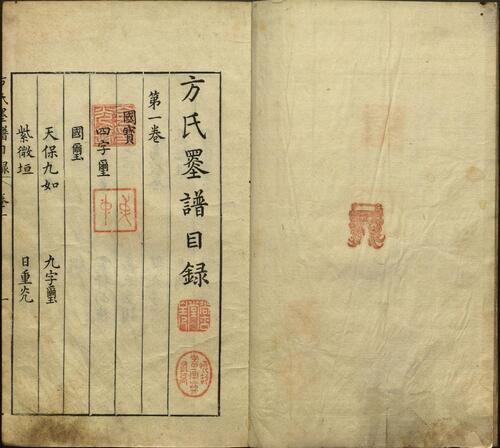 方氏墨譜目録
第一卷
國寶
四字璽
國璽
天保九如　九字璽
紫微垣　日重光
方氏墨譜目録　卷一　一